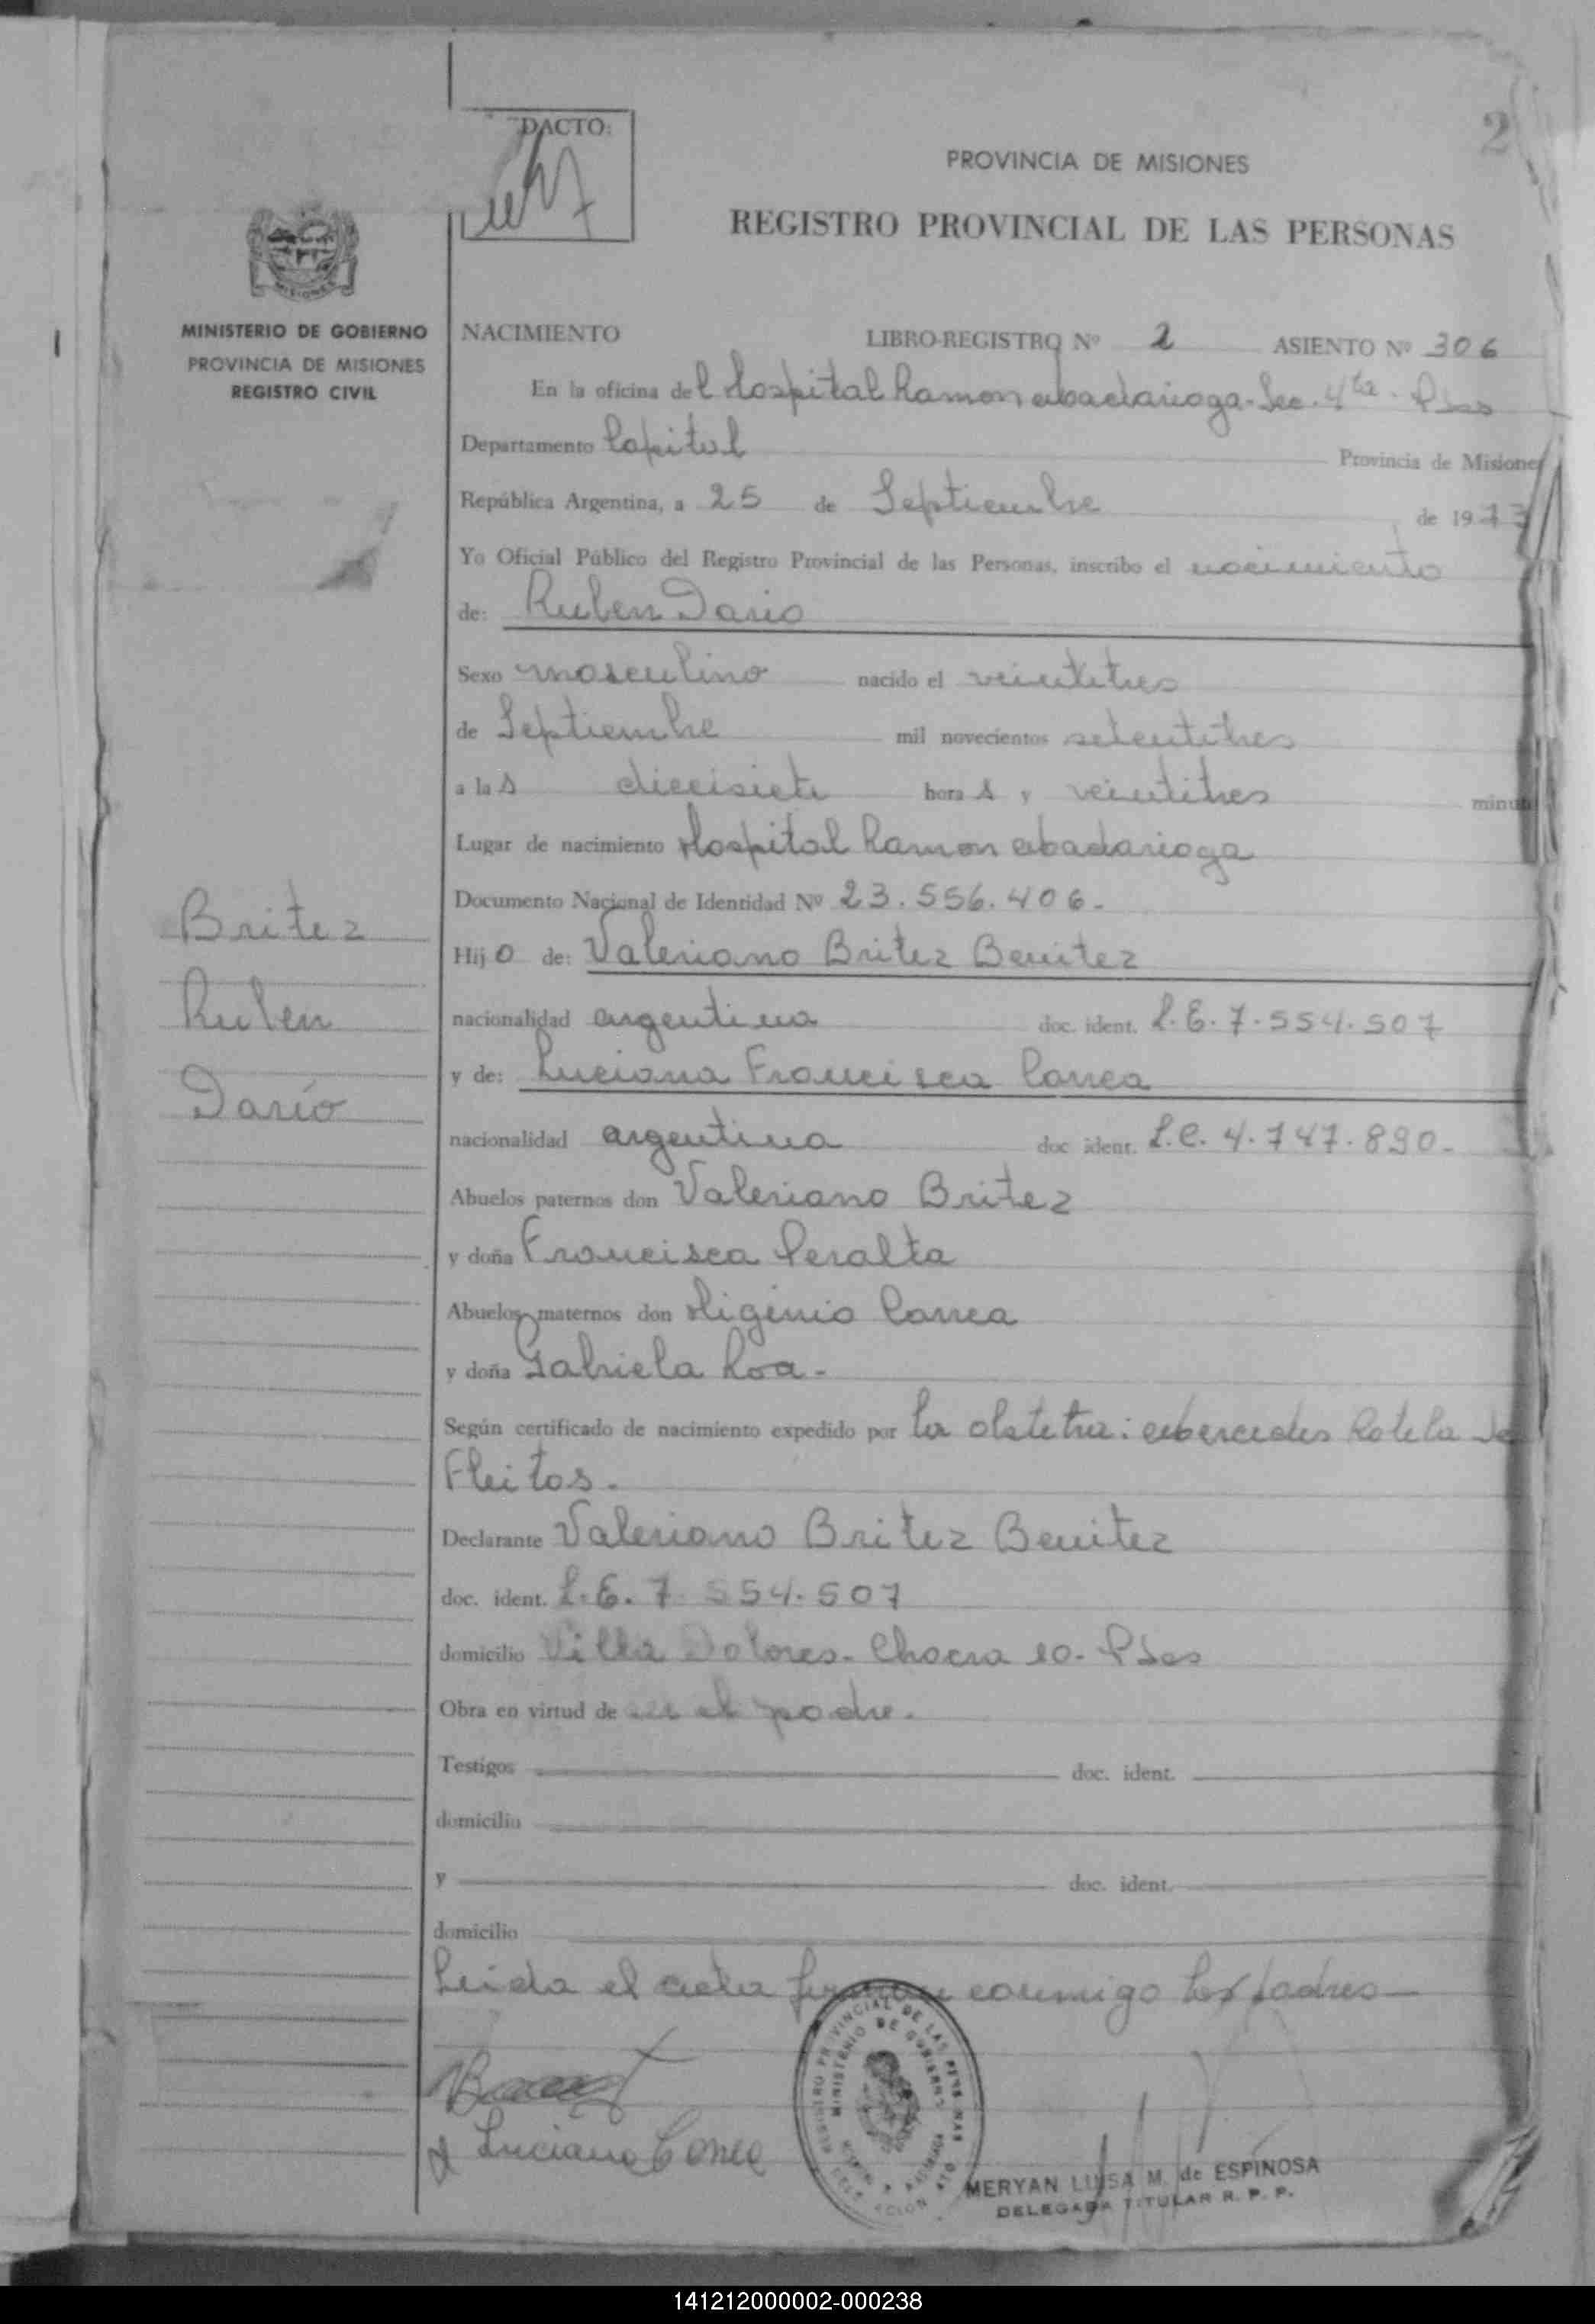 2
DACTO:
PROVINCIA DE MISIONES
REGISTRO PROVINCIAL DE LAS PERSONAS
MISIONES
MINISTERIO DE GOBIERNO
PROVINCIA DE MISIONES
REGISTRO CIVIL
NACIMIENTO LIBRO-REGISTRO Nº 2 ASIENTO Nº 306
En la oficina del Hospital Ramon Madariaga - Sec. 4ta - Pdas
Departamento Capital Provincia de Misiones
República Argentina, a 25 de Septiembre de 1973
Yo Oficial Público del Registro Provincial de las Personas, inscribo el nacimiento
de: Ruben Dario
Sexo masculino nacido el veintitres
de Septiembre mil novecientos setentitres
a las diecisiete horas y veintitres minut
Lugar de nacimiento Hospital Ramon Madariaga
Documento Nacional de Identidad Nº 23.556.406.-
Hijo de: Valeriano Britez Benitez
nacionalidad argentina doc. ident. L.E. 7.554.507
y de: Luciana Francisca Correa
nacionalidad argentina doc ident. L.C. 4.747.890.-
Abuelos paternos don Valeriano Britez
y doña Francisca Peralta
Abuelos maternos don Higinio Correa
y doña Gabriela Roa.-
Según certificado de nacimiento expedido por la obstetra: Mercedes Rotela de
Fleitas.
Declarante Valeriano Britez Benitez
doc. ident. L.E. 7.554.507
domicilio Villa Dolores - Chacra 10 - Pdas
Obra en virtud de ser el padre.
Testigos doc. ident.
domicilio
y doc. ident.
domicilio
Leida el acta firman conmigo los padres
Britez
Ruben
Darío
Luciana Correa
REGISTRO PROVINCIAL DE LAS PERSONAS
MINISTERIO DE GOBIERNO
MERYAN LUISA M. de ESPINOSA
DELEGADA TITULAR R. P. P.
141212000002-000238